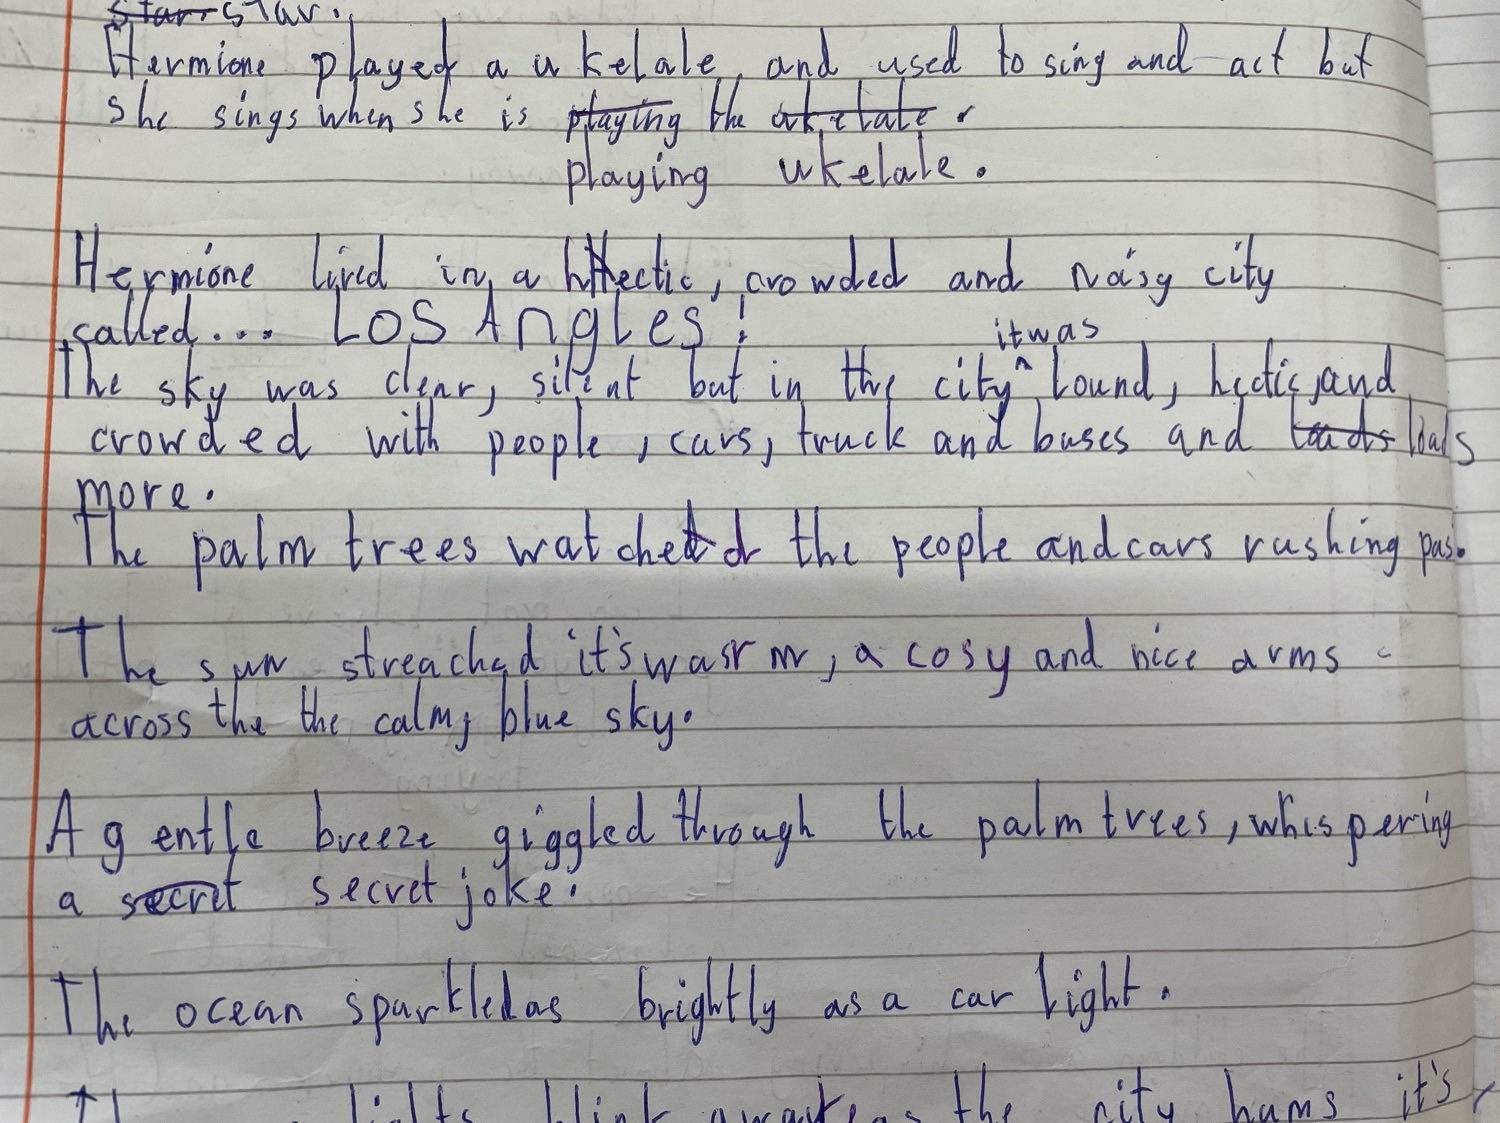 star star.
Hermione played a ukelale, and used to sing and act but
she sings when she is playing the ukelale.
playing ukelale.
Hermione lived in a hectic, crowded and noisy city
called... Los Angles!
it was
The sky was clear, silent but in the city ^ lound, hectic, and
crowded with people, cars, truck and buses and loads loads
more.
The palm trees watched the people and cars rushing pas.
The sun streached it's warm, a cosy and nice arms
across the the calm, blue sky.
A gentle breeze giggled through the palm trees, whispering
a secret secret joke.
The ocean sparkled as brightly as a car light.
lights blink as the city hums it's